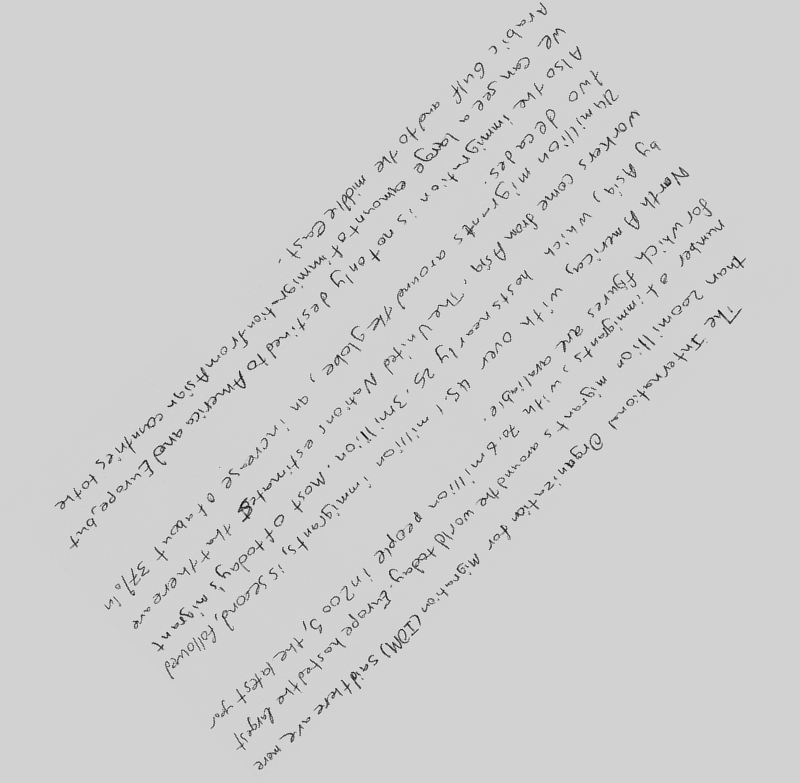 The International Organization for Migration (IOM) said there are more
than 200 million migrants around the world today. Europe hosted the largest
number of immigrants, with 70.6 million people in 2005, the latest year
for which figures are avaliable.
North America, with over 45.1 million immigrants, is second, followed
by Asia, which hosts nearly 25.3 million. Most of today's migrant
workers come from Asia. The United Nations estimates that there are
214 million migrants around the globe, an increase of about 37% in
two decades.
Also the immigration is not only destined to America and Europe, but
we can see a large amount of immigration from Asian countries to the
Arabic Gulf and to the middle East.